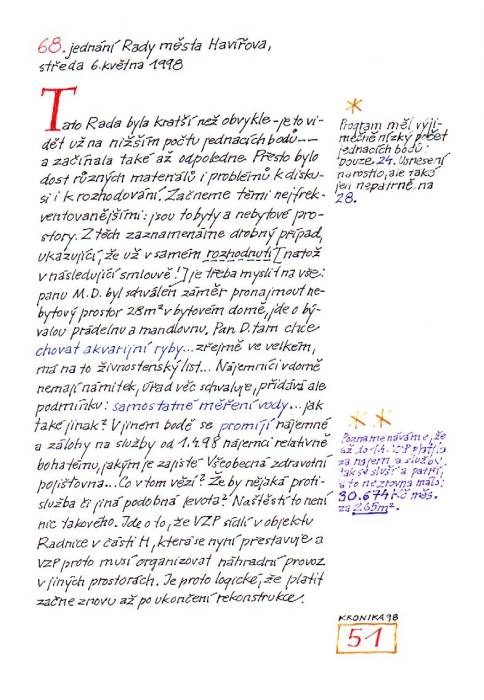 68. jednání Rady města Havířova,
středa 6. května 1998
Tato Rada byla kratší než obvykle - je to vi-
dět už na nižším počtu jednacích bodů -*-
a začínala také až odpoledne. Přesto bylo
dost různých materiálů i problémů k disku-
si i k rozhodování. Začneme těmi nejfrek-
ventovanějšími: jsou to byty a nebytové pro-
story. Z těch zaznamenáme drobný případ,
ukazující, že už v samém rozhodnutí [natož
v následující smlouvě!] je třeba myslit na vše:
panu M.D. byl schválen záměr pronajmout ne-
bytový prostor 28m² v bytovém domě, jde o bý-
valou prádelnu a mandlovnu. Pan D. tam chce
chovat akvarijní ryby... zřejmě ve velkém,
má na to živnostenský list... Nájemníci v domě
nemají námitek, úřad věc schvaluje, přidává ale
podmínku: samostatné měření vody... jak
také jinak? V jiném bodě se promíjí nájemné
a zálohy na služby od 1.4.98 nájemci relativně
bohatému, jakým je zajisté Všeobecná zdravotní
pojišťovna... Co v tom vězí? Že by nějaká proti-
služba či jiná podobná levota? Naštěstí to není
nic takového. Jde o to, že VZP sídlí v objektu
Radnice v části H, která se nyní přestavuje a
VZP proto musí organizovat náhradní provoz
v jiných prostorách. Je proto logické, že platit
začne znovu až po ukončení rekonstrukce.
*
Program měl výji-
mečně nízký počet
jednacích bodů:
pouze 24. Usnesení
narostlo, ale také
jen nepatrně, na
28.
**
Poznamenáváme, že
až do 1.4. VZP platila
za nájem a služby,
jak se sluší a patří,
a to nezrovna málo:
30.674 Kč měs.
za 265m².
KRONIKA 98
51